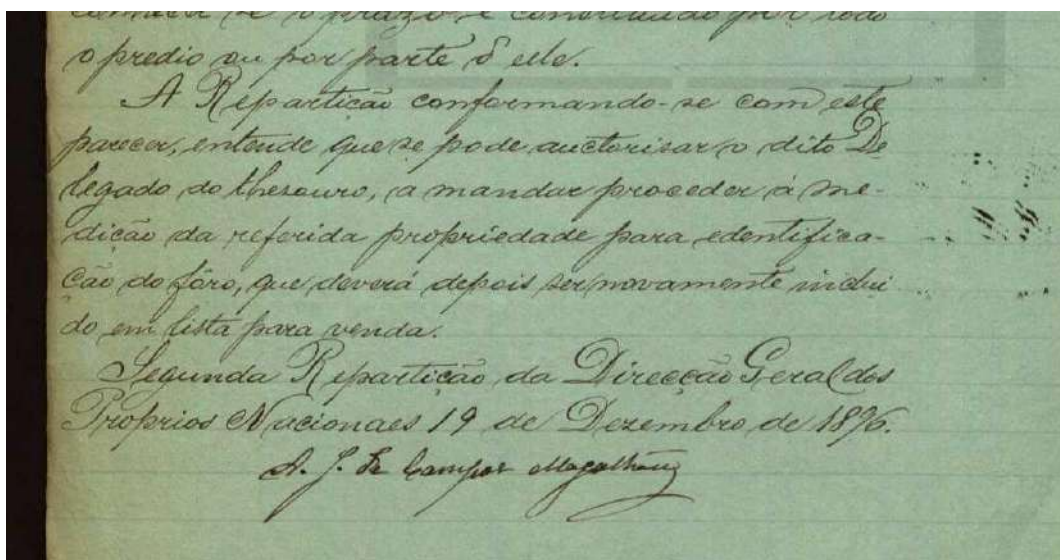 conhecer se o prazo é constituido por todo
o predio ou por parte d'elle.
A Repartição conformando-se com este
parecer, entende que se pode auctorisar o dito De
legado do thesouro, a mandar proceder á me-
dição da referida propriedade para edentifica-
ção do fôro, que deverá depois ser novamente inclui
do em lista para venda.
Segunda Repartição da Direcção Geral dos
Proprios Nacionaes 19 de Dezembro de 1896.
A. J. de Campos Magalhães